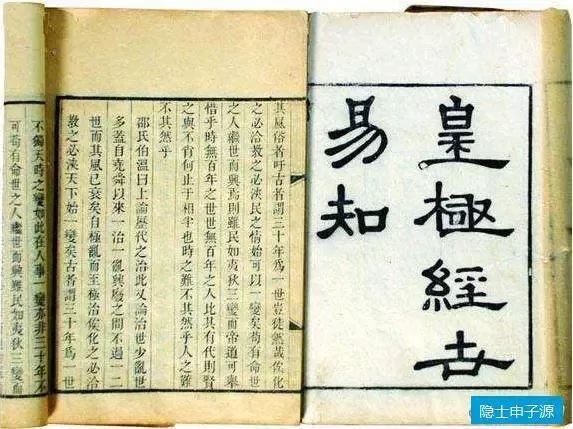 皇極經世
易知
其風俗者吁古者謂三十年爲一世豈徒然哉俟化
之必洽教之必浹民之情始可以一變矣苟有命世
之人繼世而興焉則雖民如夷狄三變而帝道可舉
惜乎時無百年之世世無百年之人比其有代則賢
之與不肖何止于相半也時之難不其然乎人之難
不其然乎
邵氏伯溫曰上論歷代之治此又論治世少亂世
多蓋自堯舜以來一治一亂興廢之間不過一二
世而其風已衰矣自極亂而至極治俟化之必洽
教之必浹天下始一變矣古者謂三十年爲一世
不獨天時之變如此在人事一變亦非三十年不
可苟有命世之人繼世而興雖民如夷狄三變而
隐士申子源